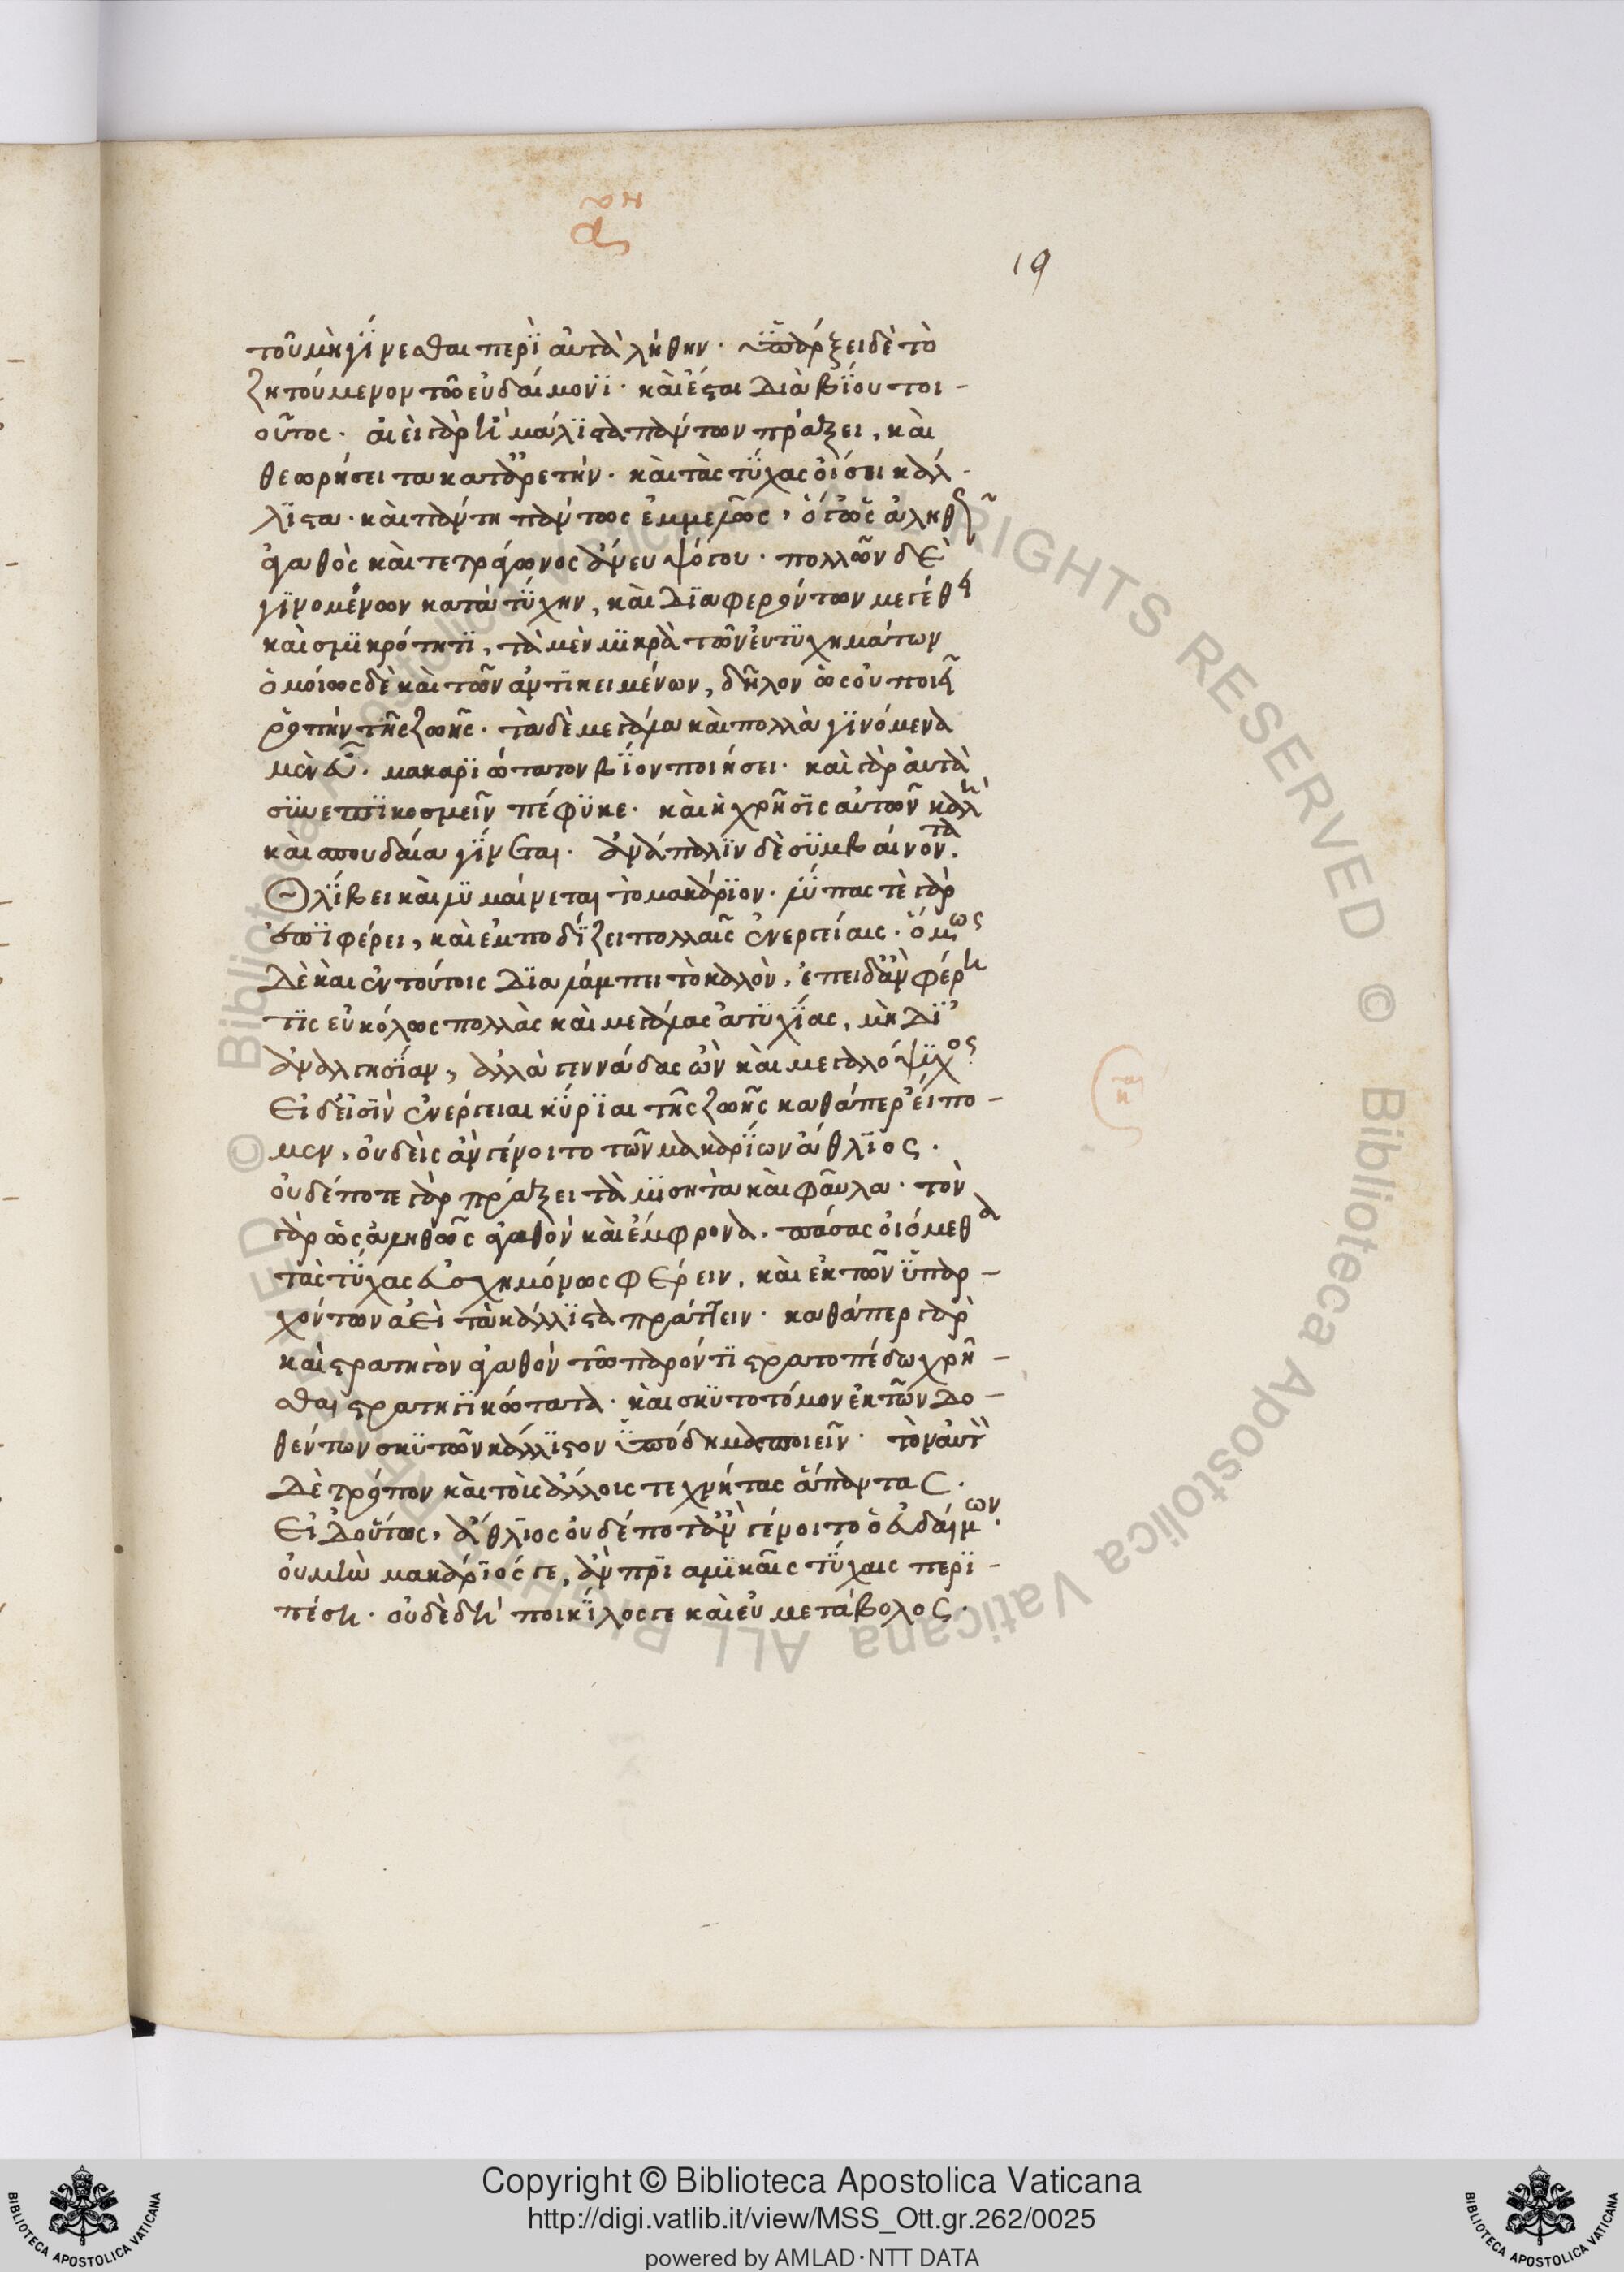 19
τοῦ μὴ γίνεσθαι περὶ αὐτὰ λήθην. ὑπάρξει δὲ τὸ
ζητούμενον τῶ εὐδαίμονι. καὶ ἔσται διὰ βίου τοι-
οῦτος. αἰεὶ γὰρ ἢ μάλιστα πάντων πράξει, καὶ
θεωρήσει τὰ κατ' ἀρετήν. καὶ τὰς τύχας οἴσει κάλ-
λιστα. καὶ πάντη πάντως ἐμμελῶς, ὅ γ' ὡς ἀληθῶς
ἀγαθὸς καὶ τετράγωνος ἄνευ ψόγου. πολλῶν δὲ
γινομένων κατὰ τύχην, καὶ διαφερόντων μεγέθει
καὶ σμικρότητι, τὰ μὲν μικρὰ τῶν εὐτυχημάτων
ὁμοίως δὲ καὶ τῶν ἀντικειμένων, δῆλον ὡς οὐ ποιεῖ
ῥοπὴν τῆς ζωῆς. τὰ δὲ μεγάλα καὶ πολλὰ γινόμενα
μὲν εὖ. μακαριώτατον βίον ποιήσει. καὶ γὰρ αὐτὰ
συνεπικοσμεῖν πέφυκε. καὶ ἡ χρῆσις αὐτῶν καλὴ
καὶ σπουδαία γίνεται. ἀνάπαλιν δὲ συμβαίνοντα.
Θλίβει καὶ λυμαίνεται τὸ μακάριον. λύπας τὲ γὰρ
ἐπιφέρει, καὶ ἐμποδίζει πολλαῖς ἐνεργείαις. ὅμως
δὲ καὶ ἐν τούτοις διαλάμπει τὸ καλὸν, ἐπειδὰν φέρη
τὶς εὐκόλως πολλὰς καὶ μεγάλας ἀτυχίας, μὴ δι'
ἀναλγησίαν, ἀλλὰ γεννάδας ὢν καὶ μεγαλόψυχος.
Εἰ δ' εἰσὶν ἐνέργειαι κύριαι τῆς ζωῆς καθάπερ εἴπο-
μεν, οὐδεὶς ἂν γένοιτο τῶν μακαρίων ἄθλιος.
οὐδέποτε γὰρ πράξει τὰ μισητὰ καὶ φαῦλα. τὸν
γὰρ ὡς ἀληθῶς ἀγαθὸν καὶ ἔμφρονα. πάσας οἰόμεθα
τὰς τύχας εὐσχημόνως φέρειν, καὶ ἐκ τῶν ὑπαρ-
χόντων ἀεὶ τὰ κάλλιστα πράττειν. καθάπερ γὰρ
καὶ στρατηγὸν ἀγαθὸν τῶ παρόντι στρατοπέδω χρῆ-
σθαι στρατηγικώτατα. καὶ σκυτοτόμον ἐκ τῶν δο-
θέντων σκυτῶν κάλλιστον ὑπόδημα ποιεῖν. τὸν αὐτὸν
δὲ τρόπον καὶ τοὶς ἄλλοις τεχνήτας ἅπαντας.
Εἰ δ' οὕτως, ἄθλιος οὐδέποτ' ἂν γένοιτο ὁ εὐδαίμων.
οὐ μὴν μακάριός γε, ἂν πριαμικαῖς τύχαις περι-
πέση. οὐδὲ δὴ ποικίλος γε καὶ εὐμετάβολος.
Copyright © Biblioteca Apostolica Vaticana
http://digi.vatlib.it/view/MSS_Ott.gr.262/0025
powered by AMLAD·NTT DATA